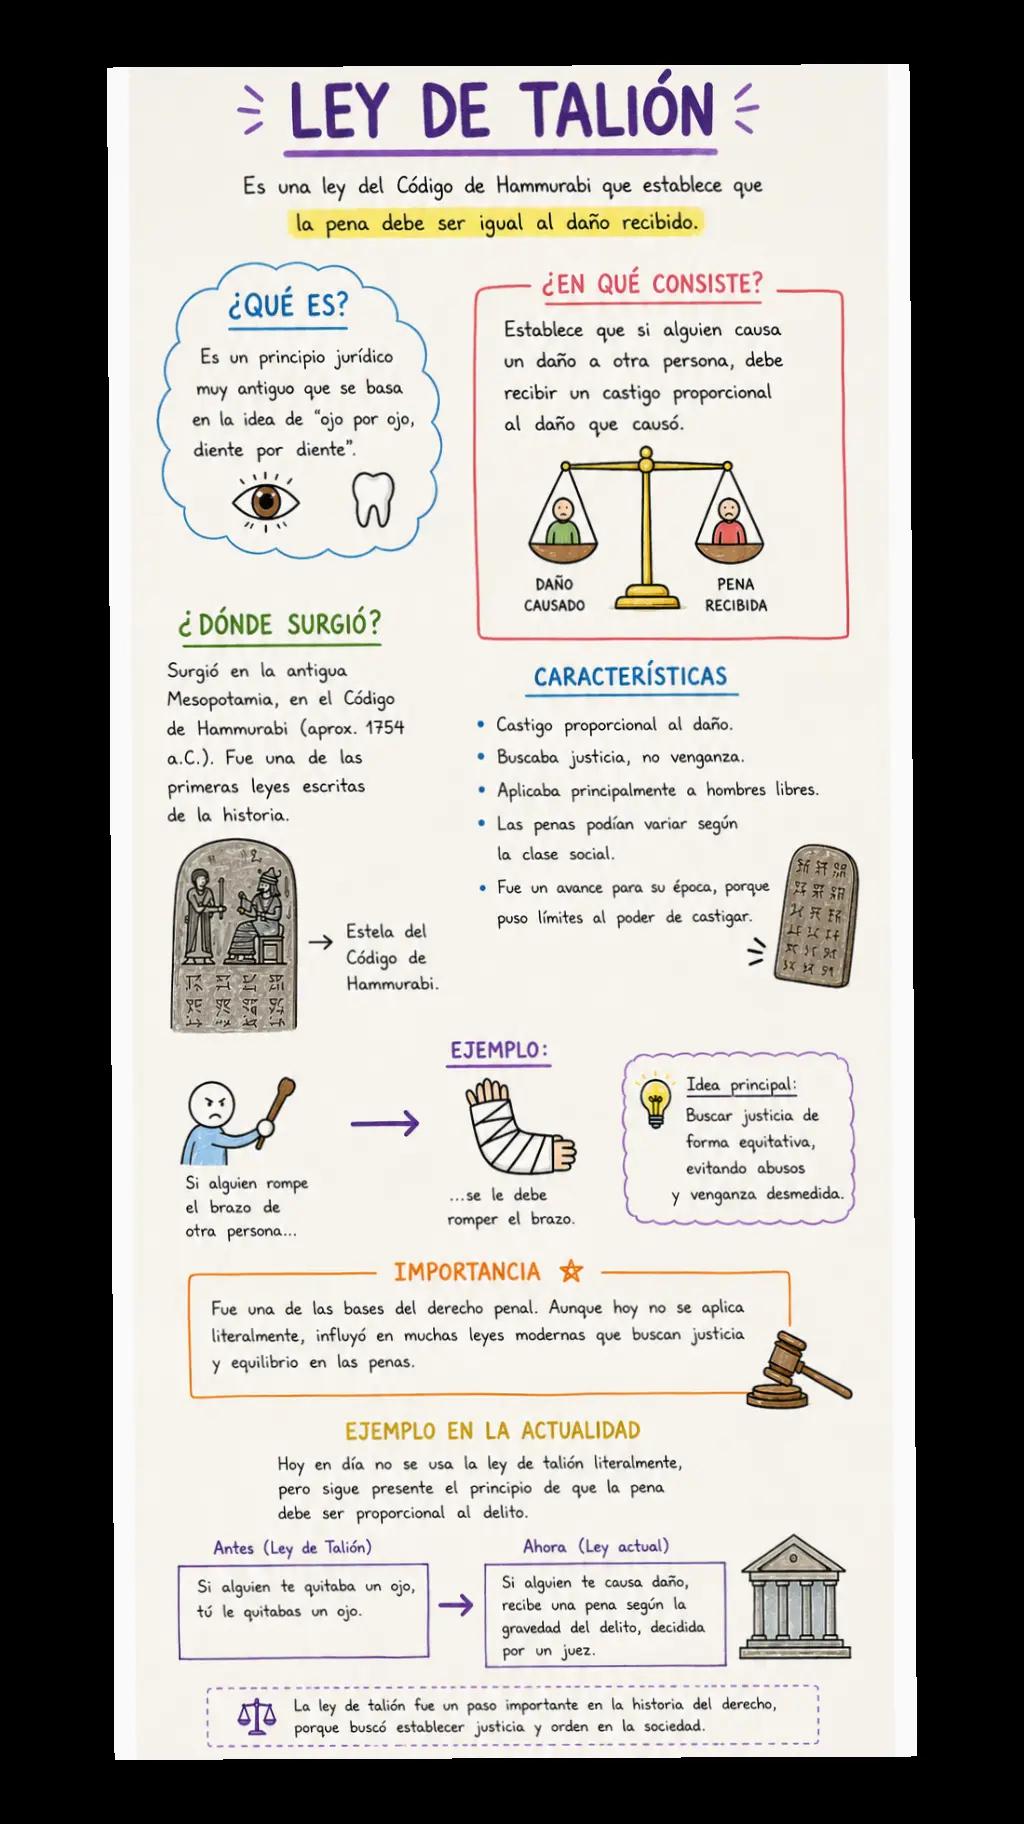 LEY DE TALIÓN
Es una ley del Código de Hammurabi que establece que
la pena debe ser igual al daño recibido.
¿QUÉ ES?
Es un principio jurídico
muy antiguo que se basa
en la idea de “ojo por ojo,
diente por diente”.
¿EN QUÉ CONSISTE?
Establece que si alguien causa
un daño a otra persona, debe
recibir un castigo proporcional
al daño que causó.
DAÑO
CAUSADO
PENA
RECIBIDA
¿DÓNDE SURGIÓ?
Surgió en la antigua
Mesopotamia, en el Código
de Hammurabi (aprox. 1754
a.C.). Fue una de las
primeras leyes escritas
de la historia.
Estela del
Código de
Hammurabi.
CARACTERÍSTICAS
• Castigo proporcional al daño.
• Buscaba justicia, no venganza.
• Aplicaba principalmente a hombres libres.
• Las penas podían variar según
la clase social.
• Fue un avance para su época, porque
puso límites al poder de castigar.
EJEMPLO:
Si alguien rompe
el brazo de
otra persona...
...se le debe
romper el brazo.
Idea principal:
Buscar justicia de
forma equitativa,
evitando abusos
y venganza desmedida.
IMPORTANCIA
Fue una de las bases del derecho penal. Aunque hoy no se aplica
literalmente, influyó en muchas leyes modernas que buscan justicia
y equilibrio en las penas.
EJEMPLO EN LA ACTUALIDAD
Hoy en día no se usa la ley de talión literalmente,
pero sigue presente el principio de que la pena
debe ser proporcional al delito.
Antes (Ley de Talión)
Si alguien te quitaba un ojo,
tú le quitabas un ojo.
Ahora (Ley actual)
Si alguien te causa daño,
recibe una pena según la
gravedad del delito, decidida
por un juez.
La ley de talión fue un paso importante en la historia del derecho,
porque buscó establecer justicia y orden en la sociedad.